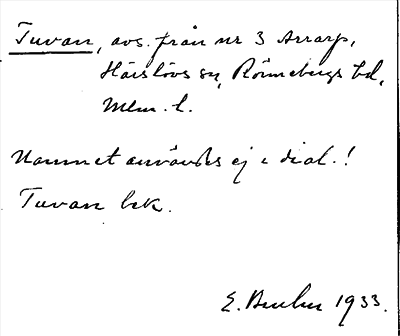 Tuvan, avs. från nr 3 Asarp,
Härslövs sn, Rönnebergs hd,
Mlm. l.
Namnet användes ej i dial.!
Tuvan bek.
E. 1933.